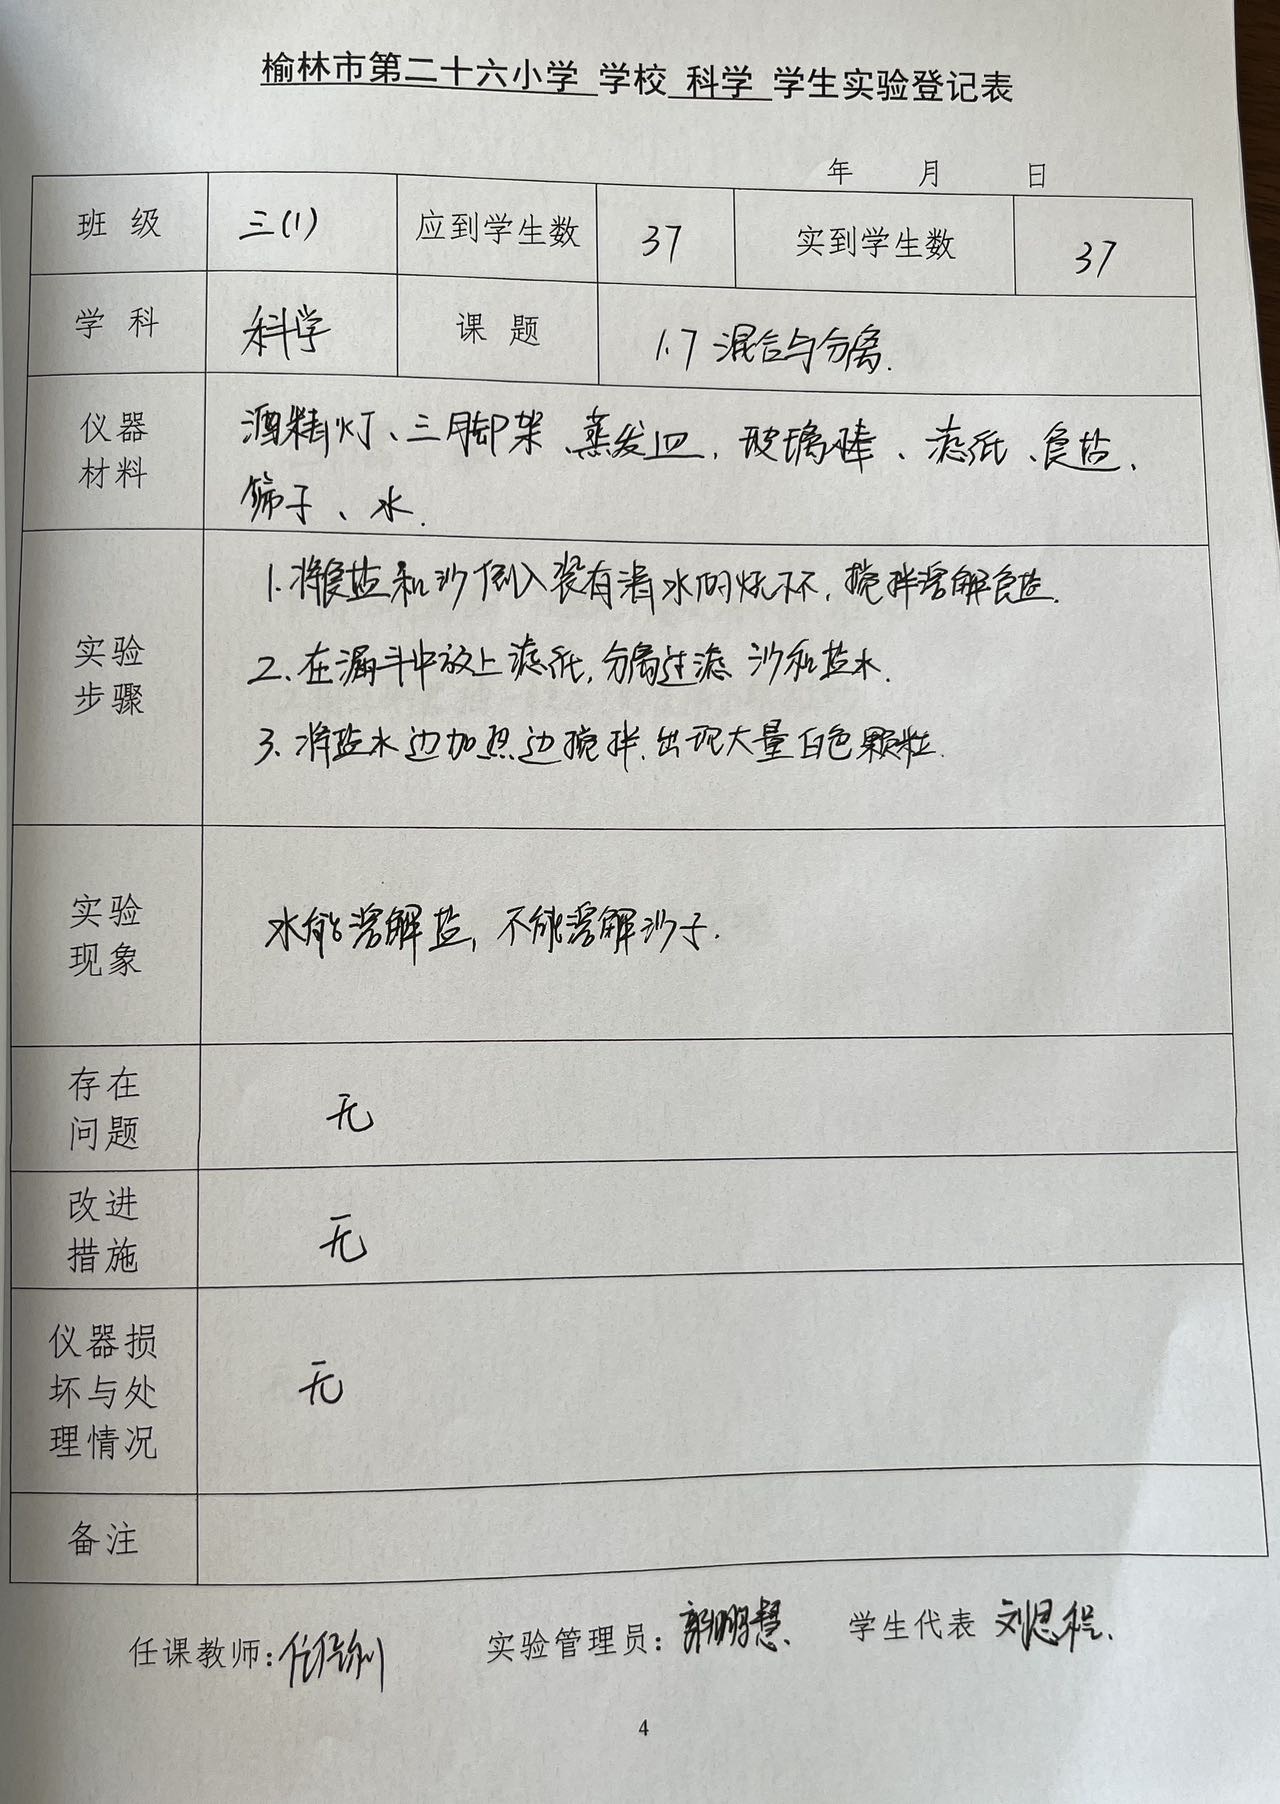 榆林市第二十六小学 学校 科学 学生实验登记表
年 月 日
班级 三(1) 应到学生数 37 实到学生数 37
学科 科学 课题 1.7 混合与分离.
仪器
材料
酒精灯、三脚架、蒸发皿, 玻璃棒、滤纸、食盐,
筛子、水.
实验
步骤
1. 将食盐和沙倒入装有清水的烧杯, 搅拌溶解食盐.
2、在漏斗中放上滤纸, 分离过滤 沙和盐水.
3、将盐水边加热边搅拌, 出现大量白色颗粒.
实验
现象
水能溶解盐, 不能溶解沙子.
存在
问题
无
改进
措施
无
仪器损
坏与处
理情况
无
备注
任课教师: 实验管理员: 郭明慧 学生代表 刘思程.
4